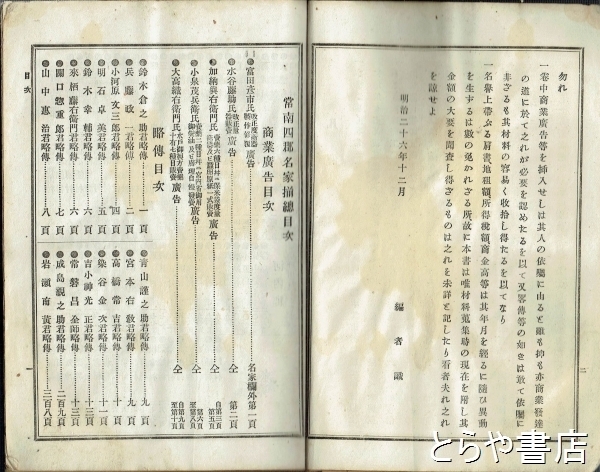 勿れ
一卷中商業廣告等を挿入せしは其人の依囑に由ると雖も抑も亦商業發達
の道に於て之れが必要を認めたるを以て又畧傳等の如きは敢て依囑に
非ざるも其材料の容易く收拾し得たるを以てなり
一名譽上帶ふる肩書地租額所得稅額商金高等は其年月を經るに隨ひ異動
を生ずるは數の免かれざる所故に本書は唯材料蒐集時の現在を用し其
金額の大要を調査し得ざるものは之れを未詳と記したり看者夫れ之れ
を諒せよ
明治二十六年十二月
編者識
二
常南四郡名家揃總目次
商業廣告目次
富田彥市氏 廣告 名家欄外第一頁
水谷藤助氏 廣告 仝 第二頁
加納與右衛門氏 廣告 仝 自第三頁至第五頁
小泉茂兵衛氏 廣告 仝 第六頁至第八頁
大高織右衛門氏 廣告 仝 自第九頁至第十頁
略傳目次
鈴木倉之助君略傳 一頁
兵藤政一君略傳 二頁
小河原文三郎君略傳 四頁
明石卓美君略傳 五頁
鈴木幸輔君略傳 六頁
氷栖藤右衛門君略傳 六頁
關口惣重郎君略傳 七頁
山中惠治君略傳 八頁
青山謹之助君略傳 九頁
宮本右敎君略傳 九頁
高橋常吉君略傳 十頁
染谷金次君略傳 十一頁
吉小神光正君略傳 十三頁
常磐昌全師略傳 十三頁
成島覗之助君略傳 二百九頁
岩瀬南黄君略傳 三百八頁
目次
一
とらや書店